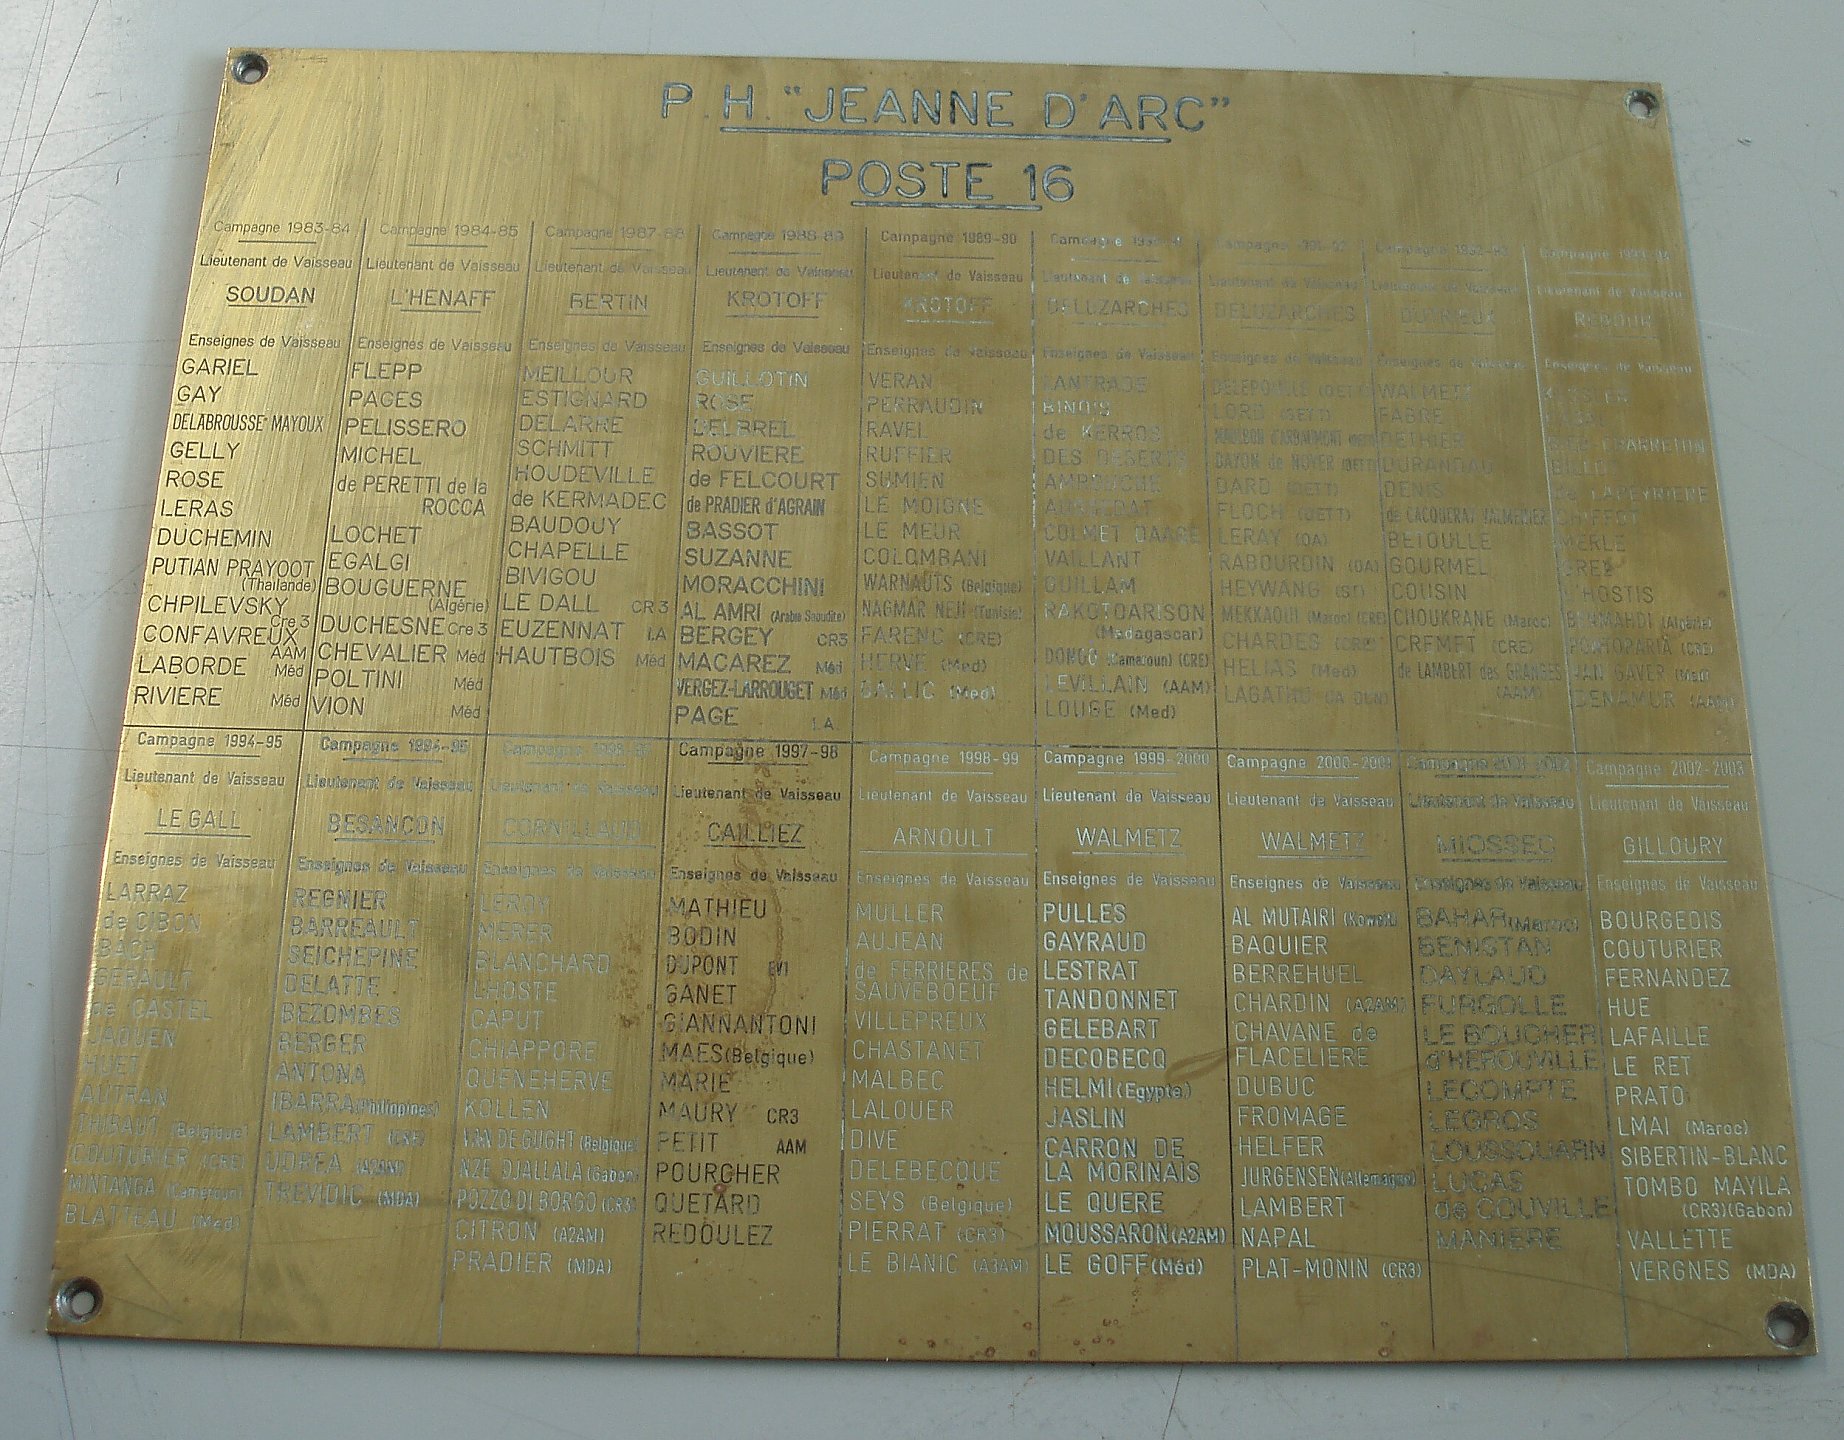 P.H. "JEANNE D'ARC"
POSTE 16
Campagne 1983-84
Lieutenant de Vaisseau
SOUDAN
Enseignes de Vaisseau
GARIEL
GAY
DELABROUSSE MAYOUX
GELLY
ROSE
LERAS
DUCHEMIN
PUTIAN PRAYOOT
(Thaïlande)
CHPILEVSKY
Cre 3
CONFAVREUX
AAM
LABORDE Méd
RIVIERE Méd
Campagne 1984-85
Lieutenant de Vaisseau
L'HENAFF
Enseignes de Vaisseau
FLEPP
PACES
PELISSERO
MICHEL
de PERETTI de la
ROCCA
LOCHET
EGALGI
BOUGUERNE
(Algérie)
DUCHESNE Cre 3
CHEVALIER Méd
POLTINI Méd
VION Méd
Campagne 1987-88
Lieutenant de Vaisseau
BERTIN
Enseignes de Vaisseau
MEILLOUR
ESTIGNARD
DELARRE
SCHMITT
HOUDEVILLE
de KERMADEC
BAUDOUY
CHAPELLE
BIVIGOU
LE DALL CR 3
EUZENNAT I.A
HAUTBOIS Méd
Campagne 1988-89
Lieutenant de Vaisseau
KROTOFF
Enseignes de Vaisseau
GUILLOTIN
ROSE
DELBREL
ROUVIERE
de FELCOURT
de PRADIER d'AGRAIN
BASSOT
SUZANNE
MORACCHINI
AL AMRI (Arabie Saoudite)
BERGEY CR3
MACAREZ Méd
VERGEZ-LARROUGET Méd
PAGE I.A.
Campagne 1989-90
Lieutenant de Vaisseau
KROTOFF
Enseignes de Vaisseau
VERAN
PERRAUDIN
RAVEL
RUFFIER
SUMIEN
LE MOIGNE
LE MEUR
COLOMBANI
WARNAUTS (Belgique)
NAGMAR NEJI (Tunisie)
FARENC (CRE)
HERVE (Med)
GALLIC (Med)
Campagne
Lieutenant de Vaisseau
DELUZARCHES
Enseignes de Vaisseau
LANTRADE
BINOIS
de KERROS
DES DESERTS
COLMET DAAGE
VAILLANT
GUILLAM
RAKOTOARISON
(Madagascar)
DONGO (Cameroun) (CRE)
LEVILLAIN (AAM)
LOUGE (Med)
Campagne 1991-92
Lieutenant de Vaisseau
DELUZARCHES
Enseignes de Vaisseau
DELEPOULLE (OETT)
LORD (OETT)
DAYON de NOYER (OETT)
DARD (OETT)
FLOCH (OETT)
LERAY (OA)
RABOURDIN (OA)
HEYWANG
MEKKAOUI (Maroc) (CRE)
CHARDES (CRE)
HELIAS (Med)
LAGATHU
Campagne 1992-93
Lieutenant de Vaisseau
Enseignes de Vaisseau
WALMETZ
FABRE
DETHIER
DURANDAU
DENIS
de CACQUERAY VALMENIER
BETOULLE
GOURMEL
COUSIN
CHOUKRANE (Maroc)
CREMET (CRE)
de LAMBERT des GRANGES
(AAM)
Campagne
Lieutenant de Vaisseau
REBOUR
Enseignes de Vaisseau
BILLOT
de LAPEYRIERE
CHIFFOT
MERLE
L'HOSTIS
BENMAHDI (Algérie)
VAN GAVER (Med)
DENAMUR (AAM)
Campagne 1994-95
Lieutenant de Vaisseau
LE GALL
Enseignes de Vaisseau
LARRAZ
de CIBON
BACH
GERAULT
de CASTEL
JAOUEN
HUET
AUTRAN
THIBAUT (Belgique)
COUTURIER (CRE)
MINTANGA (Cameroun)
BLATTEAU (Med)
Campagne
Lieutenant de Vaisseau
BESANCON
Enseignes de Vaisseau
REGNIER
BARREAULT
SEICHEPINE
DELATTE
BEZOMBES
BERGER
ANTONA
IBARRA (Philippines)
LAMBERT (CRE)
UDREA
TREVIDIC (MDA)
Campagne
Lieutenant de Vaisseau
CORNILLAUD
Enseignes de Vaisseau
LEROY
MERER
BLANCHARD
LHOSTE
CAPUT
CHIAPPORE
QUENEHERVE
KOLLEN
VAN DE GUGHT (Belgique)
NZE DJALLALA (Gabon)
POZZO DI BORGO (CR3)
CITRON (A2AM)
PRADIER (MDA)
Campagne 1997-98
Lieutenant de Vaisseau
CAILLIEZ
Enseignes de Vaisseau
MATHIEU
BODIN
DUPONT EV1
GANET
GIANNANTONI
MAES (Belgique)
MARIE
MAURY CR3
PETIT AAM
POURCHER
QUETARD
REDOULEZ
Campagne 1998-99
Lieutenant de Vaisseau
ARNOULT
Enseignes de Vaisseau
MULLER
AUJEAN
de FERRIERES de
SAUVEBOEUF
VILLEPREUX
CHASTANET
MALBEC
LALOUER
DIVE
DELEBECQUE
SEYS (Belgique)
PIERRAT (CR3)
LE BIANIC (A3AM)
Campagne 1999-2000
Lieutenant de Vaisseau
WALMETZ
Enseignes de Vaisseau
PULLES
GAYRAUD
LESTRAT
TANDONNET
GELEBART
DECOBECQ
HELMI (Egypte)
JASLIN
CARRON DE
LA MORINAIS
LE QUERE
MOUSSARON (A2AM)
LE GOFF (Méd)
Campagne 2000-2001
Lieutenant de Vaisseau
WALMETZ
Enseignes de Vaisseau
AL MUTAIRI (Koweit)
BAQUIER
BERREHUEL
CHARDIN (A2AM)
CHAVANE de
FLACELIERE
DUBUC
FROMAGE
HELFER
JURGENSEN (Allemagne)
LAMBERT
NAPAL
PLAT-MONIN (CR3)
Campagne 2001-2002
Lieutenant de Vaisseau
MIOSSEC
Enseignes de Vaisseau
BAHAR (Maroc)
BENISTAN
DAYLAUD
FURGOLLE
LE BOUCHER
d'HEROUVILLE
LECOMPTE
LEGROS
LOUSSOUARN
LUCAS
de COUVILLE
MANIERE
Campagne 2002-2003
Lieutenant de Vaisseau
GILLOURY
Enseignes de Vaisseau
BOURGEOIS
COUTURIER
FERNANDEZ
HUE
LAFAILLE
LE RET
PRATO
LMAI (Maroc)
SIBERTIN-BLANC
TOMBO MAYILA
(CR3)(Gabon)
VALLETTE
VERGNES (MDA)